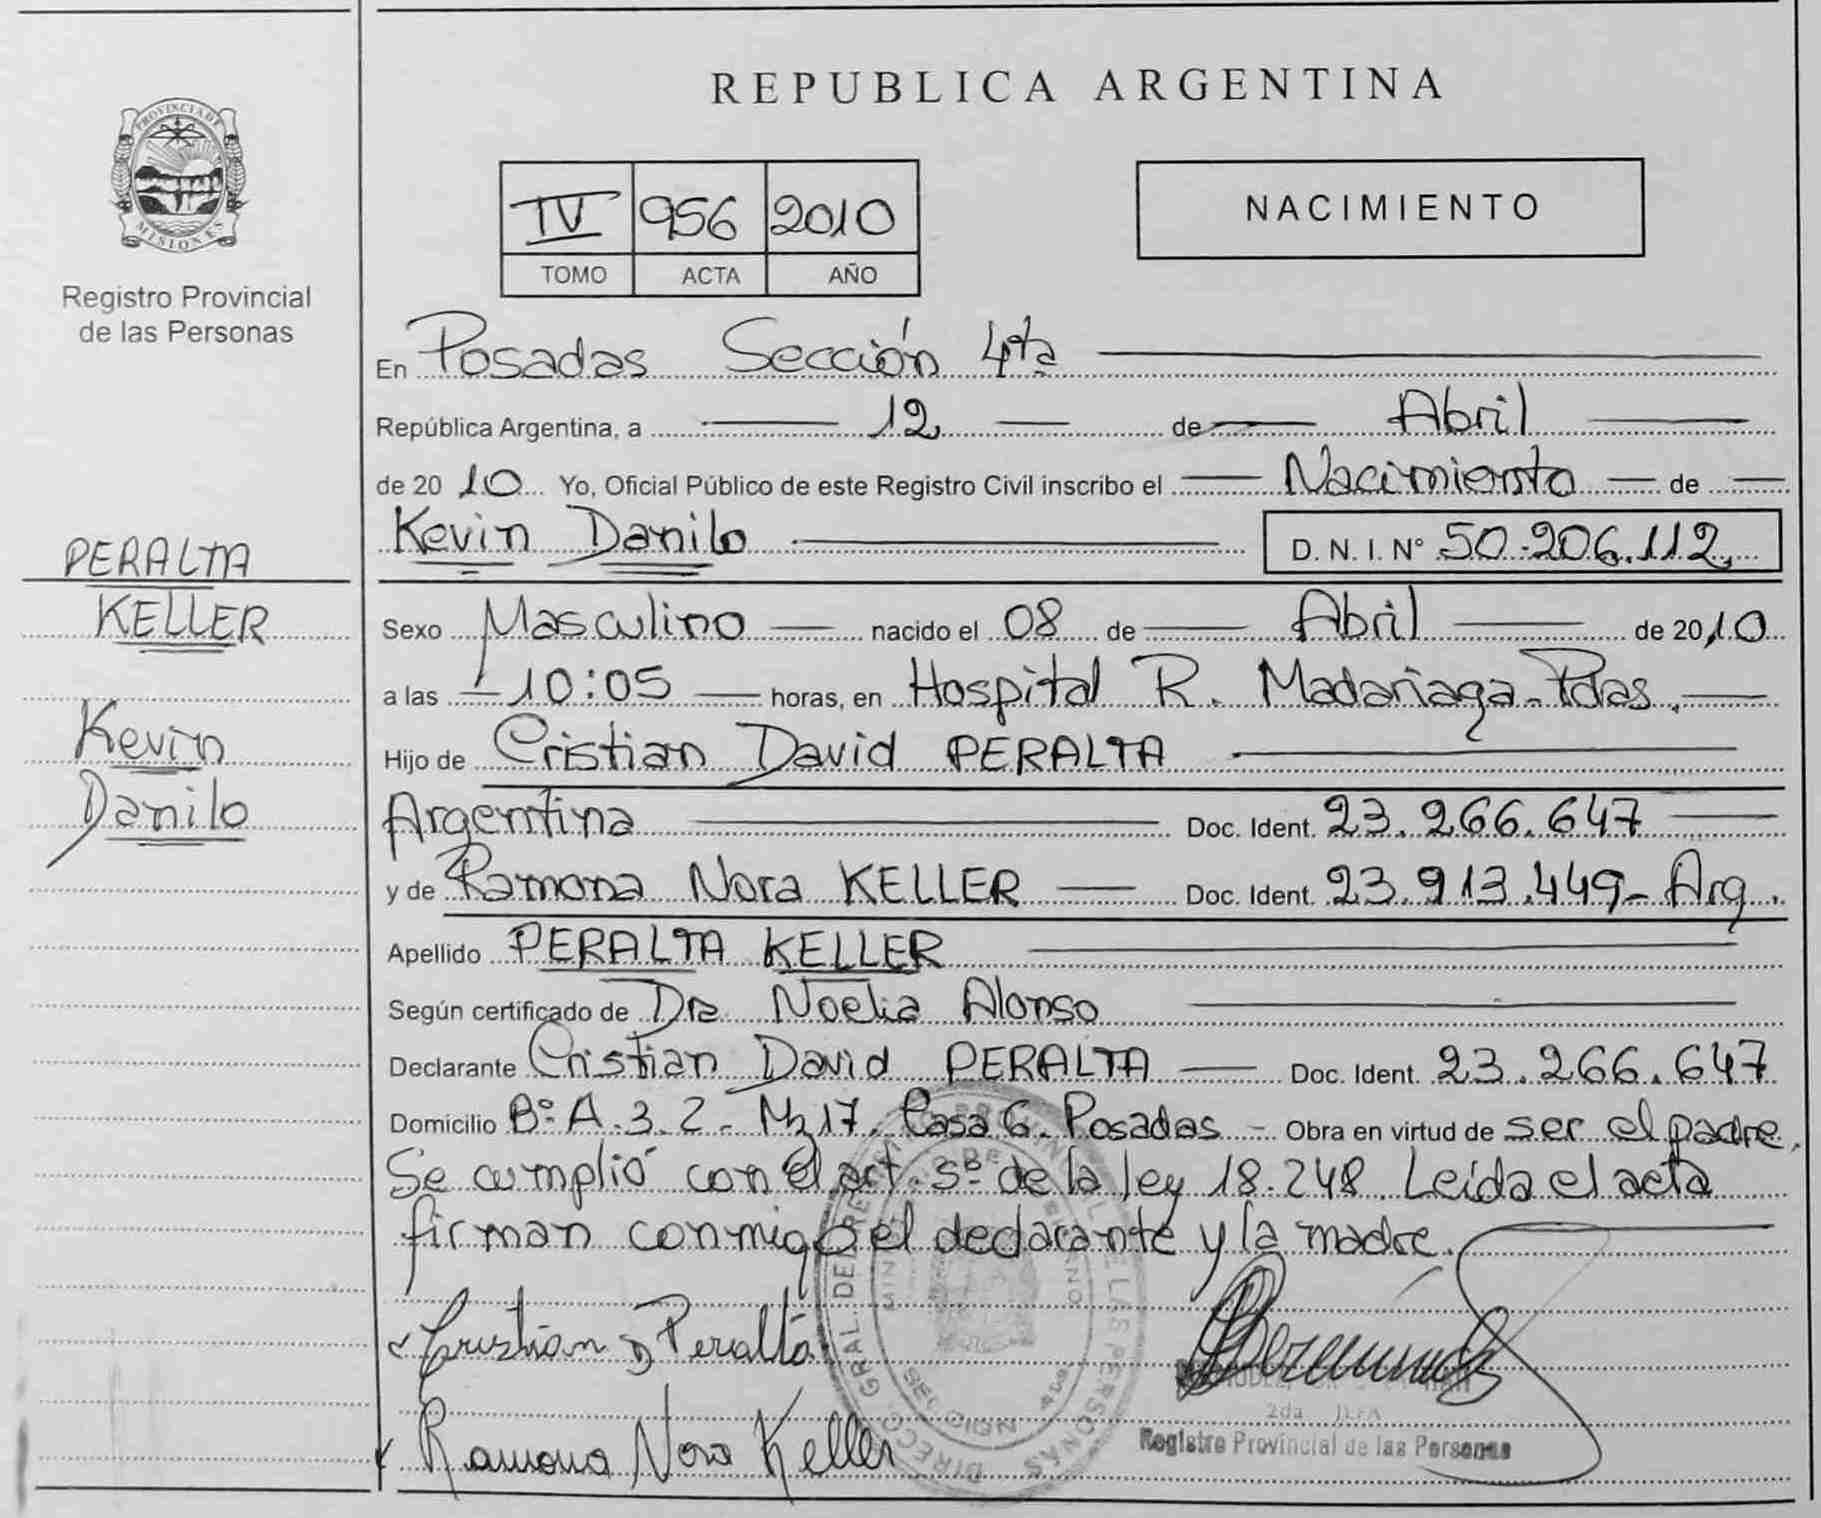 PROVINCIA DE
MISIONES
Registro Provincial
de las Personas
PERALTA
KELLER
Kevin
Danilo
REPUBLICA ARGENTINA
IV 956 2010
TOMO ACTA AÑO
NACIMIENTO
En Posadas Sección 4ta
República Argentina, a 12 de Abril
de 20 10 Yo, Oficial Público de este Registro Civil inscribo el Nacimiento de
Kevin Danilo D. N. I. Nº 50.206.112
Sexo Masculino nacido el 08 de Abril de 20 10
a las 10:05 horas, en Hospital R. Madariaga - Pdas.
Hijo de Cristian David PERALTA
Argentina Doc. Ident. 23.266.647
y de Ramona Nora KELLER Doc. Ident. 23.913.449 - Arg.
Apellido PERALTA KELLER
Según certificado de Dra Noelia Alonso
Declarante Cristian David PERALTA Doc. Ident. 23.266.647
Domicilio Bº A.3.2 - Mz 17. Casa 6. Posadas - Obra en virtud de ser el padre.
Se cumplió con el art. 5º de la ley 18.248. Leída el acta
firman conmigo el declarante y la madre.
Cristian D Peralta
Ramona Nora Keller
2da JEFA
Registro Provincial de las Personas